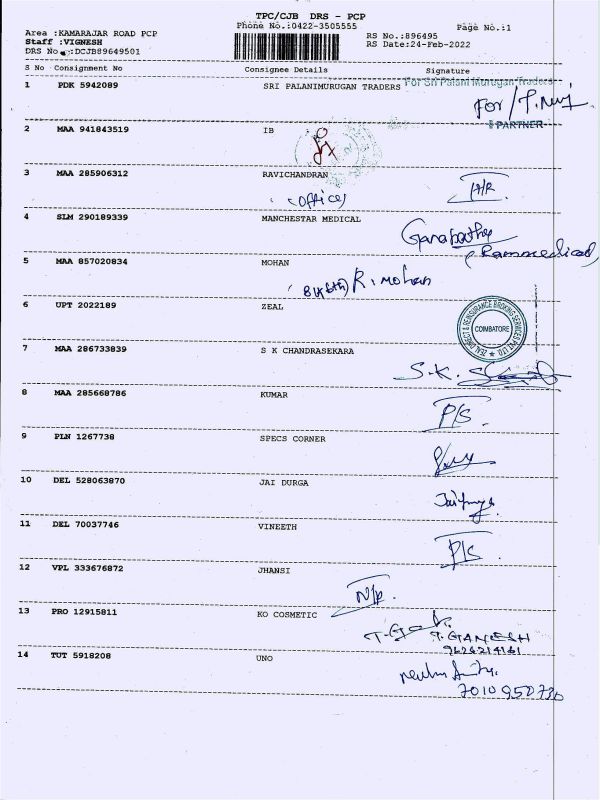 TPC/CJB DRS - PCP
Phone No.:0422-3505555
Page No.:1
Area :KAMARAJAR ROAD PCP
Staff :VIGNESH
DRS No :DCJB89649501
RS No.:896495
RS Date:24-Feb-2022
S No Consignment No Consignee Details Signature
1 PDK 5942089 SRI PALANIMURUGAN TRADERS For Sri Palani Murugan Traders
For
PARTNER
2 MAA 941843519 IB
3 MAA 285906312 RAVICHANDRAN
(office)
4 SLM 290189339 MANCHESTAR MEDICAL
5 MAA 857020834 MOHAN
R. Mohan
6 UPT 2022189 ZEAL
ZEAL DIRECT & REINSURANCE BROKING SERVICES PVT LTD
COIMBATORE
7 MAA 286733839 S K CHANDRASEKARA
S.K.
8 MAA 285668786 KUMAR
P/S
9 PLN 1267738 SPECS CORNER
10 DEL 528063870 JAI DURGA
11 DEL 70037746 VINEETH
P/S
12 VPL 333676872 JHANSI
N/R
13 PRO 12915811 KO COSMETIC
T. GANESH
14 TUT 5918208 UNO